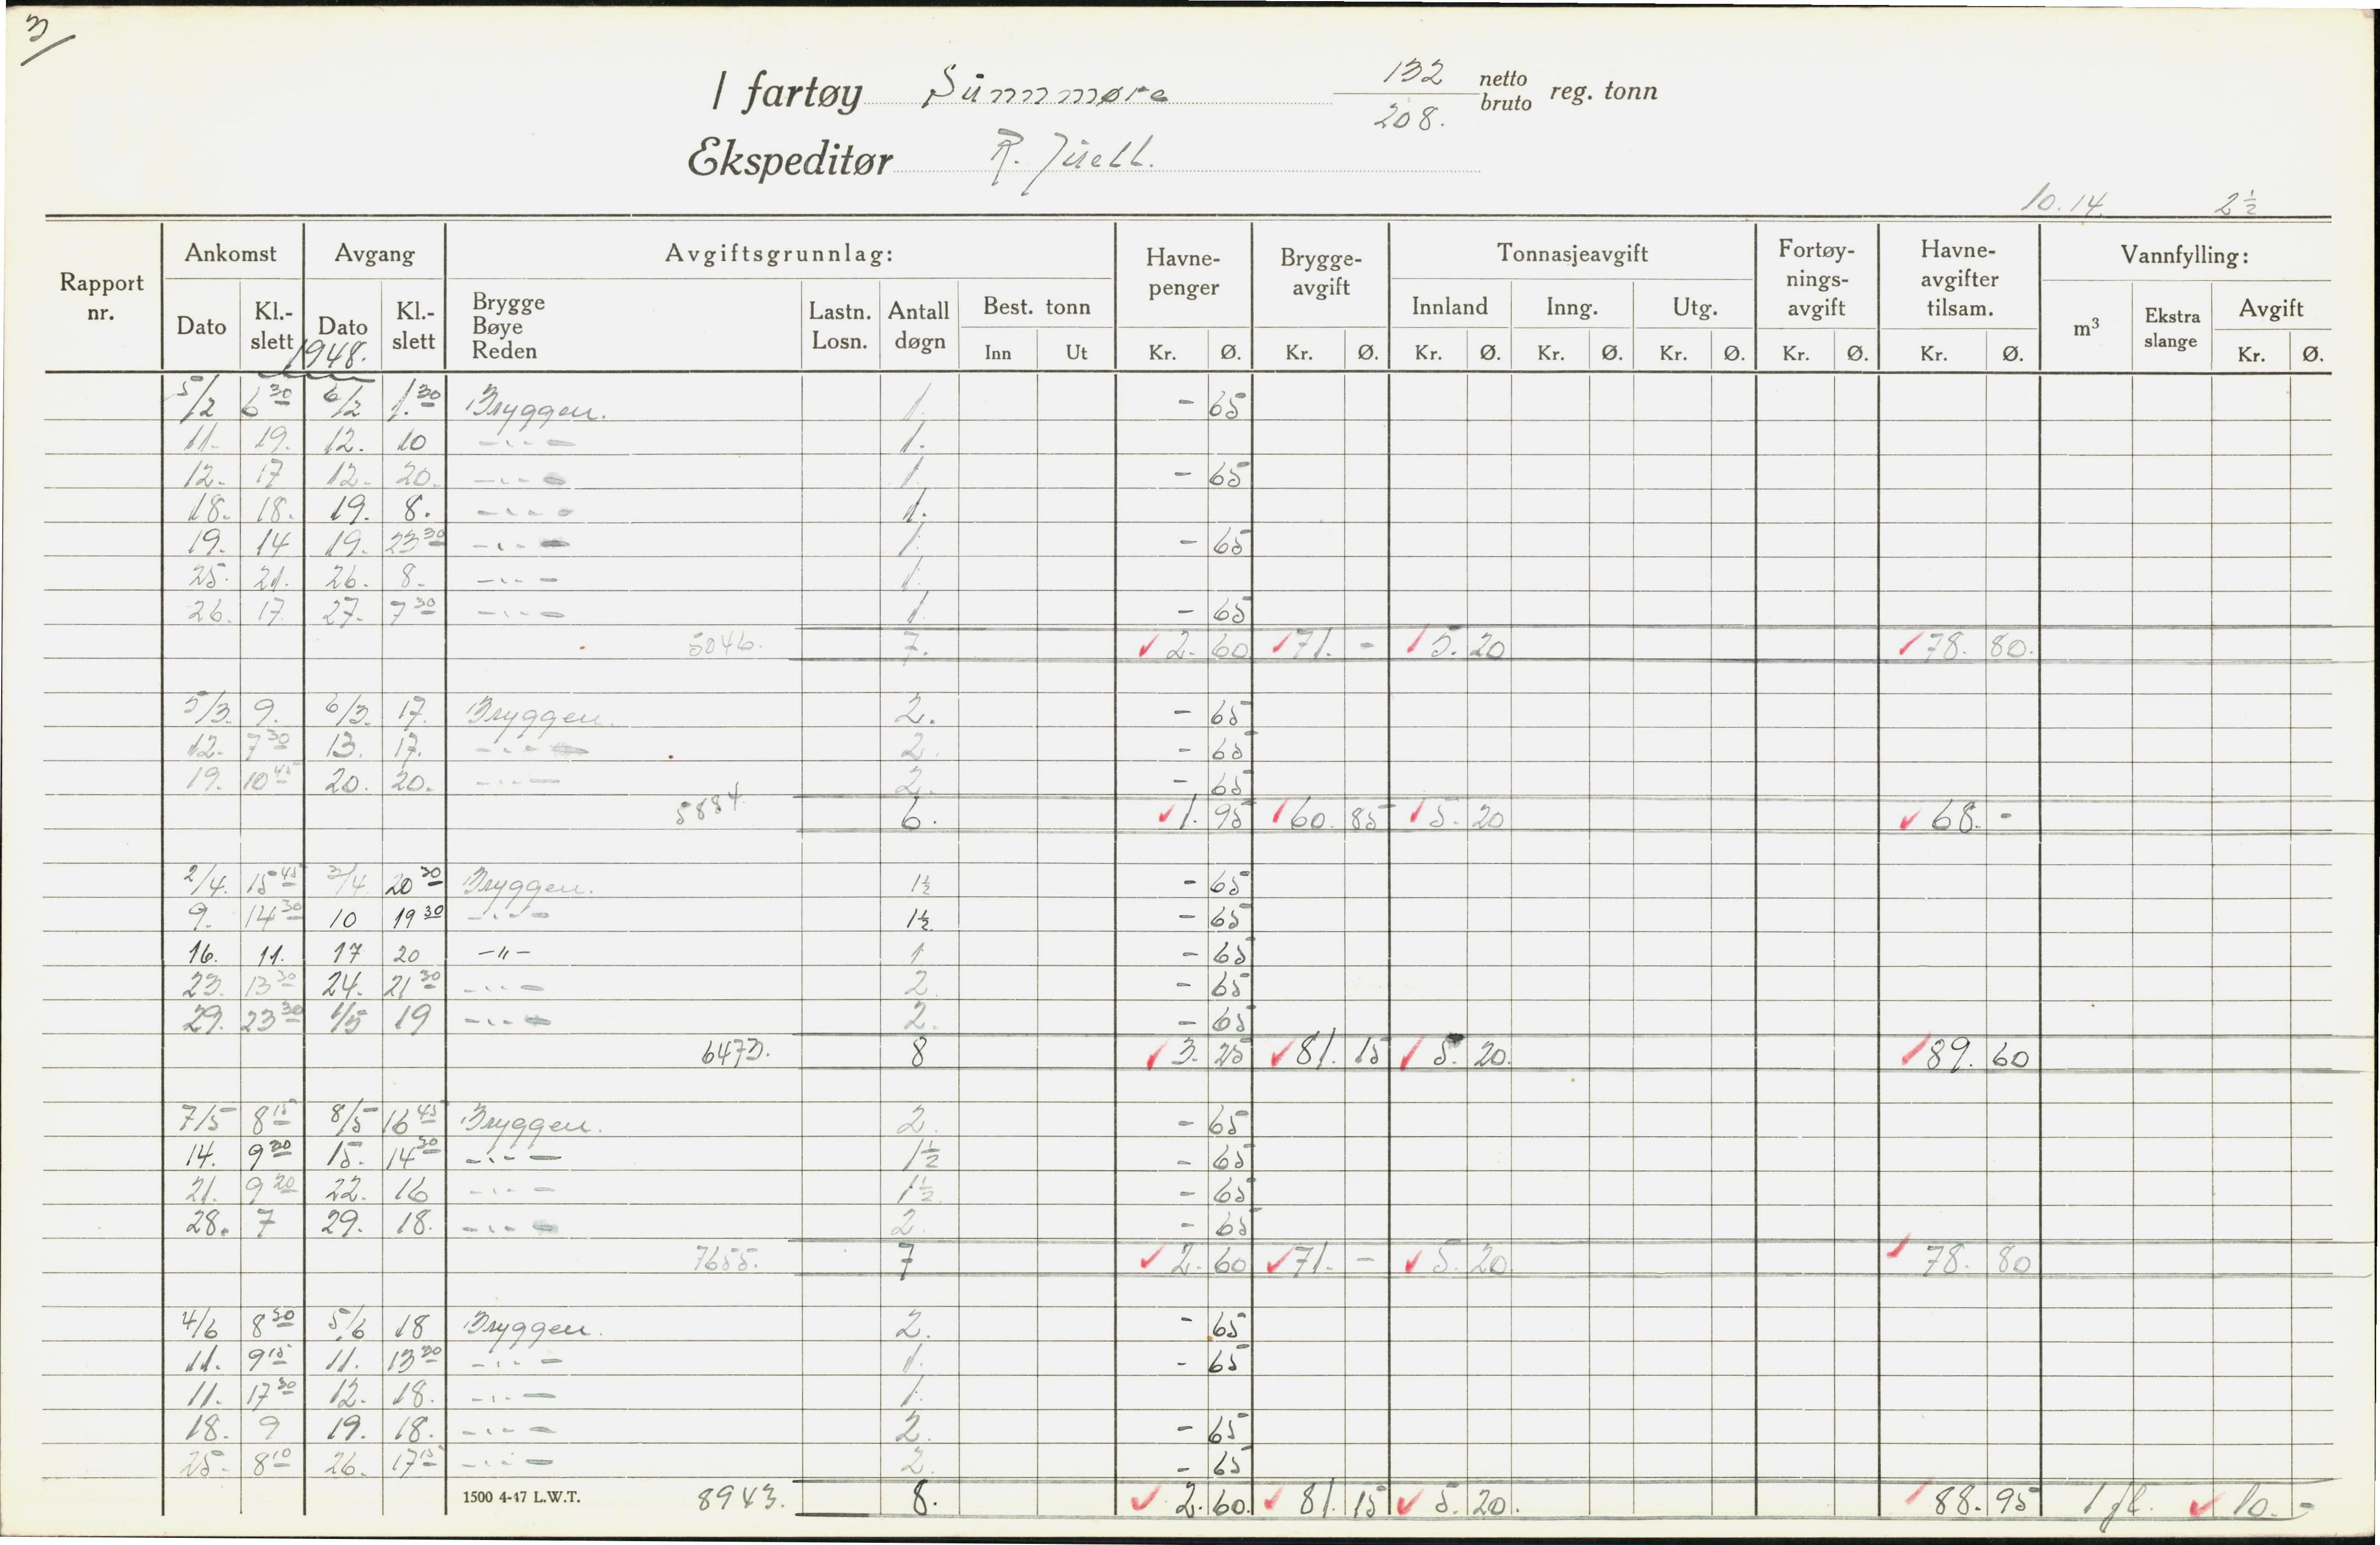 3
I fartøy Sunnmøre 132 netto
208. bruto reg. tonn
Ekspeditør R. Juell.
10.14. 2 1/2
Rapport nr. Ankomst Avgang Avgiftsgrunnlag: Havne-penger Brygge-avgift Tonnasjeavgift Fortøy-nings-avgift Havne-avgifter tilsam. Vannfylling:
Dato Kl.-slett Dato Kl.-slett Brygge Bøye Reden Lastn. Losn. Antall døgn Best. tonn Innland Inng. Utg. m³ Ekstra slange Avgift
1948.
Inn Ut Kr. Ø. Kr. Ø. Kr. Ø. Kr. Ø. Kr. Ø. Kr. Ø. Kr. Ø. Kr. Ø.
5/2 6 30 6/2 1.30 Bryggen. 1. - 65
11. 19. 12. 10 -"- 1.
12. 17 12. 20. -"- 1. - 65
18. 18. 19. 8. -"- 1.
19. 14 19. 23 30 -"- 1. - 65
25. 21. 26. 8. -"- 1.
26. 17. 27. 7 30 -"- 1. - 65
5046. 7. 2. 60 71. - 5. 20 78. 80.
5/3. 9. 6/3. 17. Bryggen. 2. - 65
12. 7 30 13. 17. -"- 2. - 65
19. 10 45 20. 20. -"- 2. - 65
5884. 6. 1. 95 60. 85 5. 20 68. -
2/4. 15 45 3/4. 20 30 Bryggen. 1 1/2 - 65
9. 14 30 10 19 30 -"- 1 1/2 - 65
16. 11. 17 20 -"- 1 - 65
23. 13 30 24. 21 30 -"- 2 - 65
29. 23 30 1/5 19 -"- 2. - 65
6473. 8 3. 25 81. 15 5. 20. 89. 60
7/5 8 15 8/5 16 45 Bryggen. 2. - 65
14. 9 20 15. 14 30 -"- 1 1/2 - 65
21. 9 20 22. 16 -"- 1 1/2 - 65
28. 7 29. 18. -"- 2. - 65
7655. 7 2. 60 71. - 5. 20 78. 80
4/6 8 30 5/6 18 Bryggen. 2. - 65
11. 9 15 11. 13 30 -"- 1. - 65
11. 17 30 12. 18. -"- 1.
18. 9 19. 18. -"- 2. - 65
25. 8 10 26. 17 15 -"- 2. - 65
1500 4-47 L.W.T. 8943. 8. 2. 60. 81. 15 5. 20. 88. 95 1 fl. 10. -